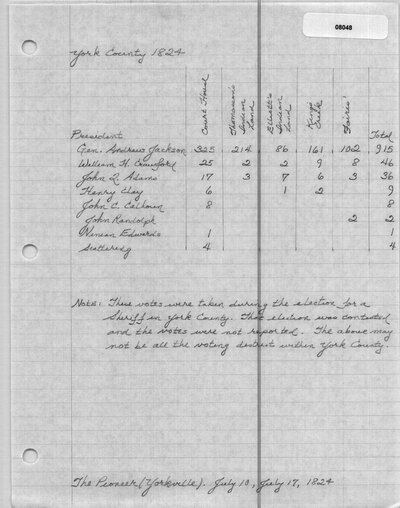 08048
York County 1824
President Court House Thomason's Indian Land Elliott's Indian Land Kings Creek Fairies' Total
Gen. Andrew Jackson 325 214 86 161 102 915
William H. Crawford 25 2 2 9 8 46
John Q Adams 17 3 7 6 3 36
Henry Clay 6 1 2 9
John C. Calhoun 8 8
John Randolph 2 2
Ninian Edwards 1 1
Scattering 4 4
Note: These votes were taken during the election for a
Sheriff in York County. That election was contested
and the votes were not reported. The above may
not be all the voting district within York County.
The Pioneer (Yorkville). July 10, July 17, 1824